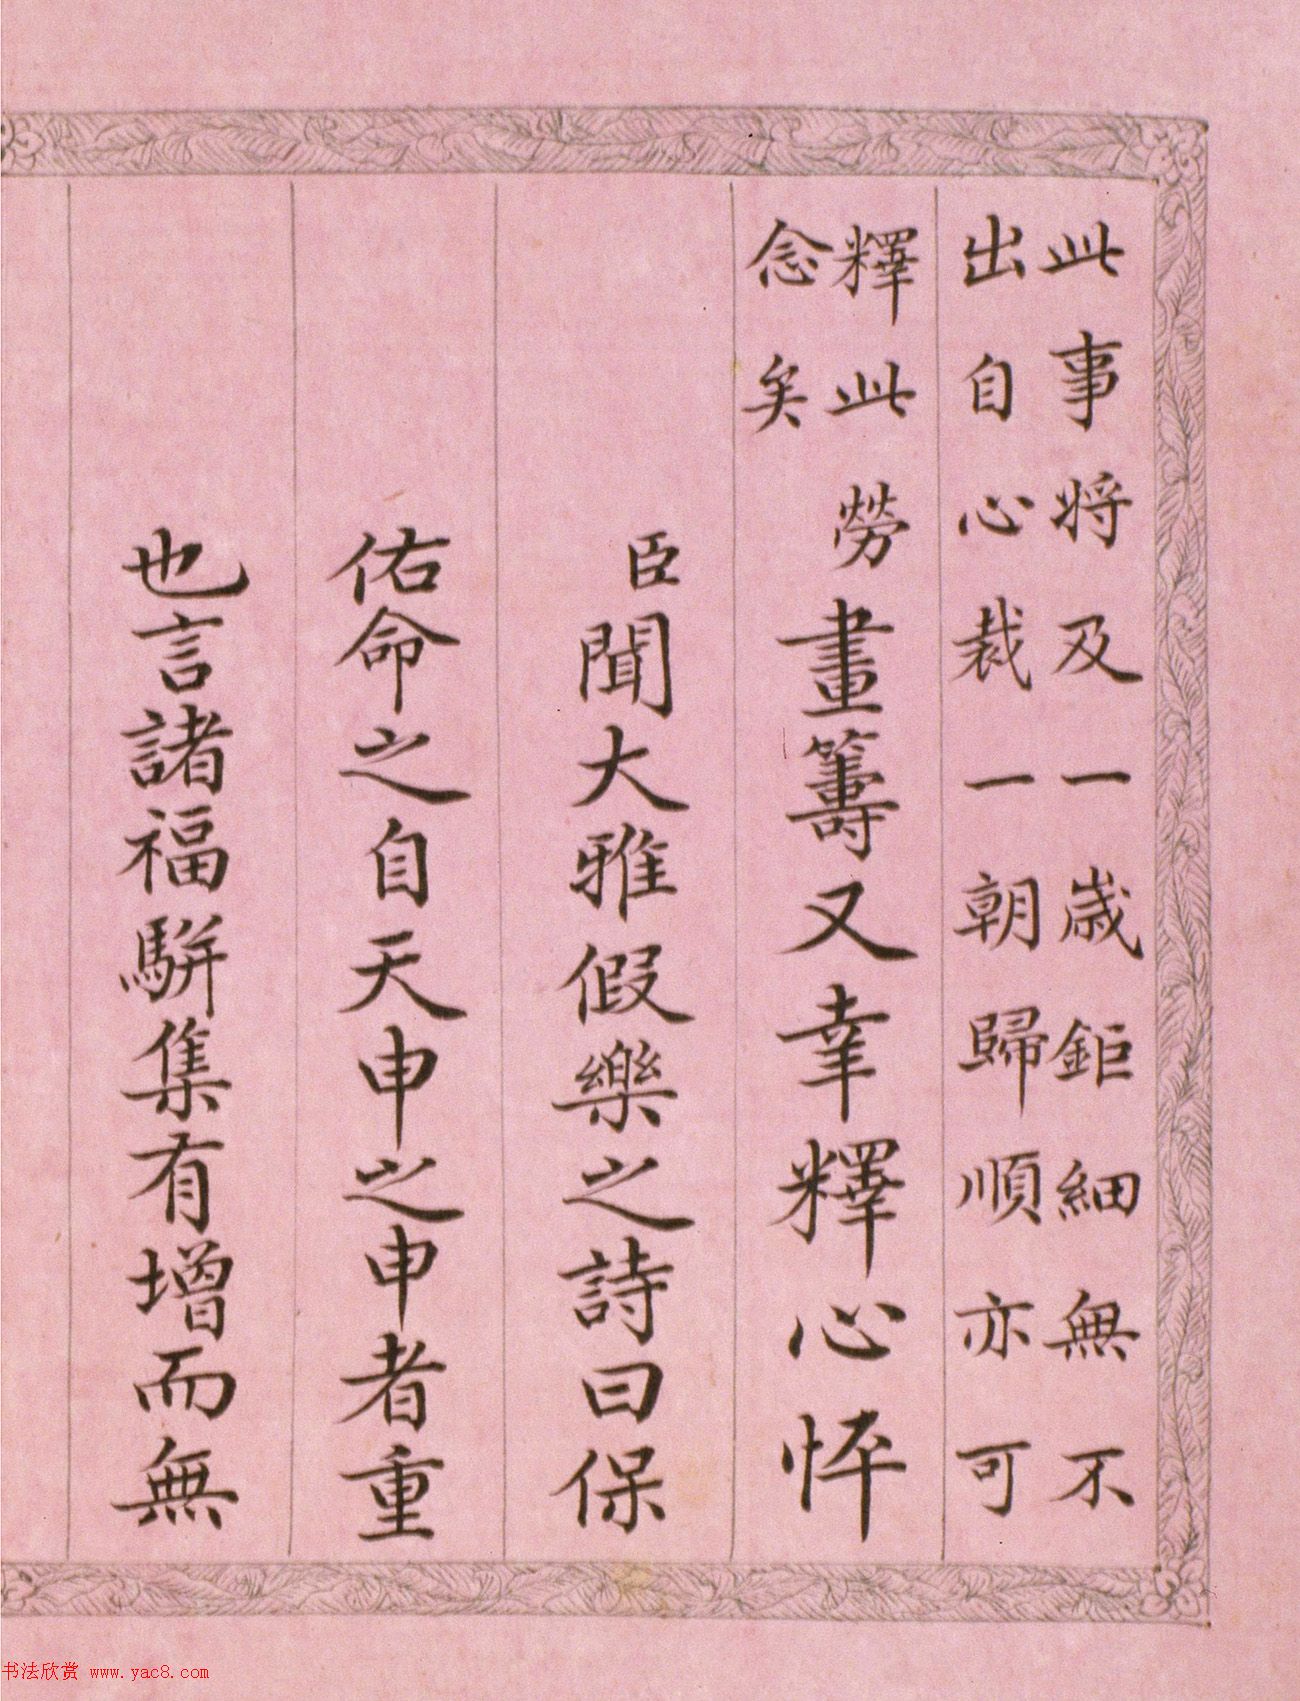 此事將及一歲鉅細無不
出自心裁一朝歸順亦可
釋此勞
念矣
畫籌又幸釋心怦
臣聞大雅假樂之詩曰保
佑命之自天申之申者重
也言諸福駢集有增而無
书法欣赏 www.yac8.com